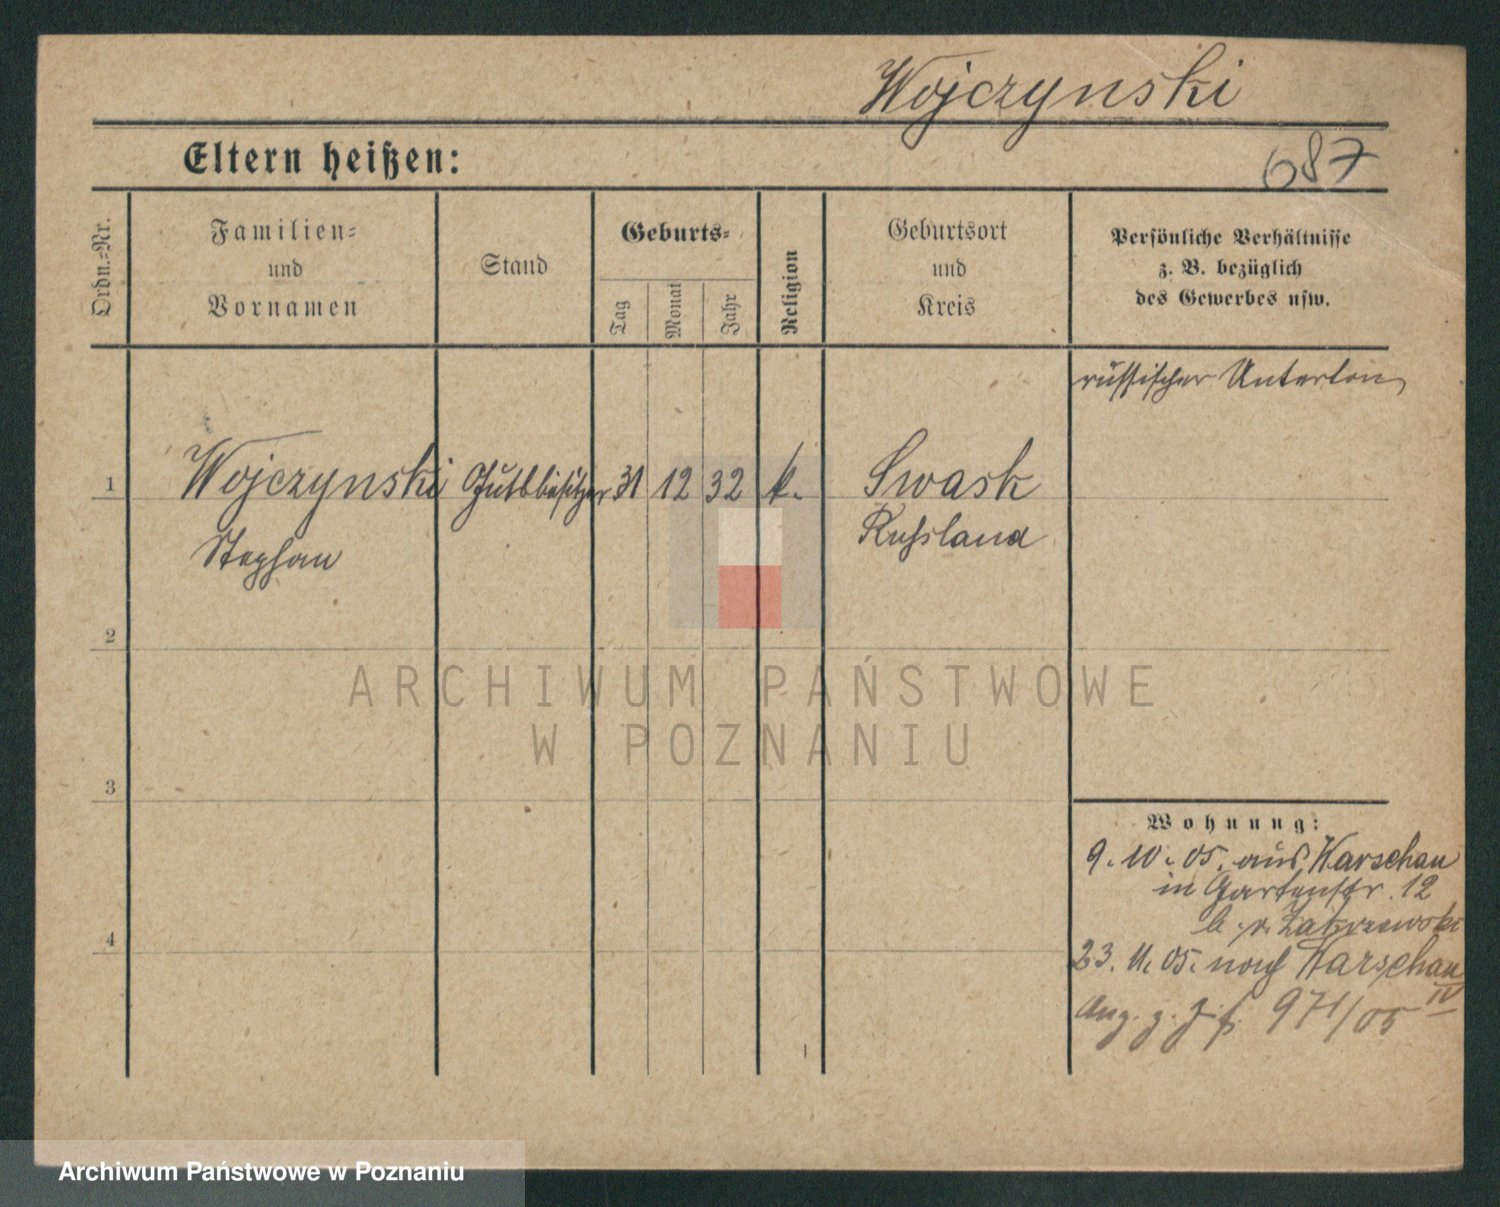 Wojczynski
Eltern heißen:
687
Ordn.-Nr.
Familien-
und
Vornamen
Stand
Geburts-
Tag
Monat
Jahr
Religion
Geburtsort
und
Kreis
Persönliche Verhältnisse
z. B. bezüglich
des Gewerbes usw.
russischer Untertan
1
Wojczynski Gutsbesitzer 31 12 32 k. Swask
Stephan
Russland
2
ARCHIWUM PAŃSTWOWE
W POZNANIU
3
Wohnung:
9.10.05. aus Warschau
in Gartenstr. 12
b. v. Zakrzewski
4
23. 11. 05. nach Warschau
IV
971/05
Archiwum Państwowe w Poznaniu